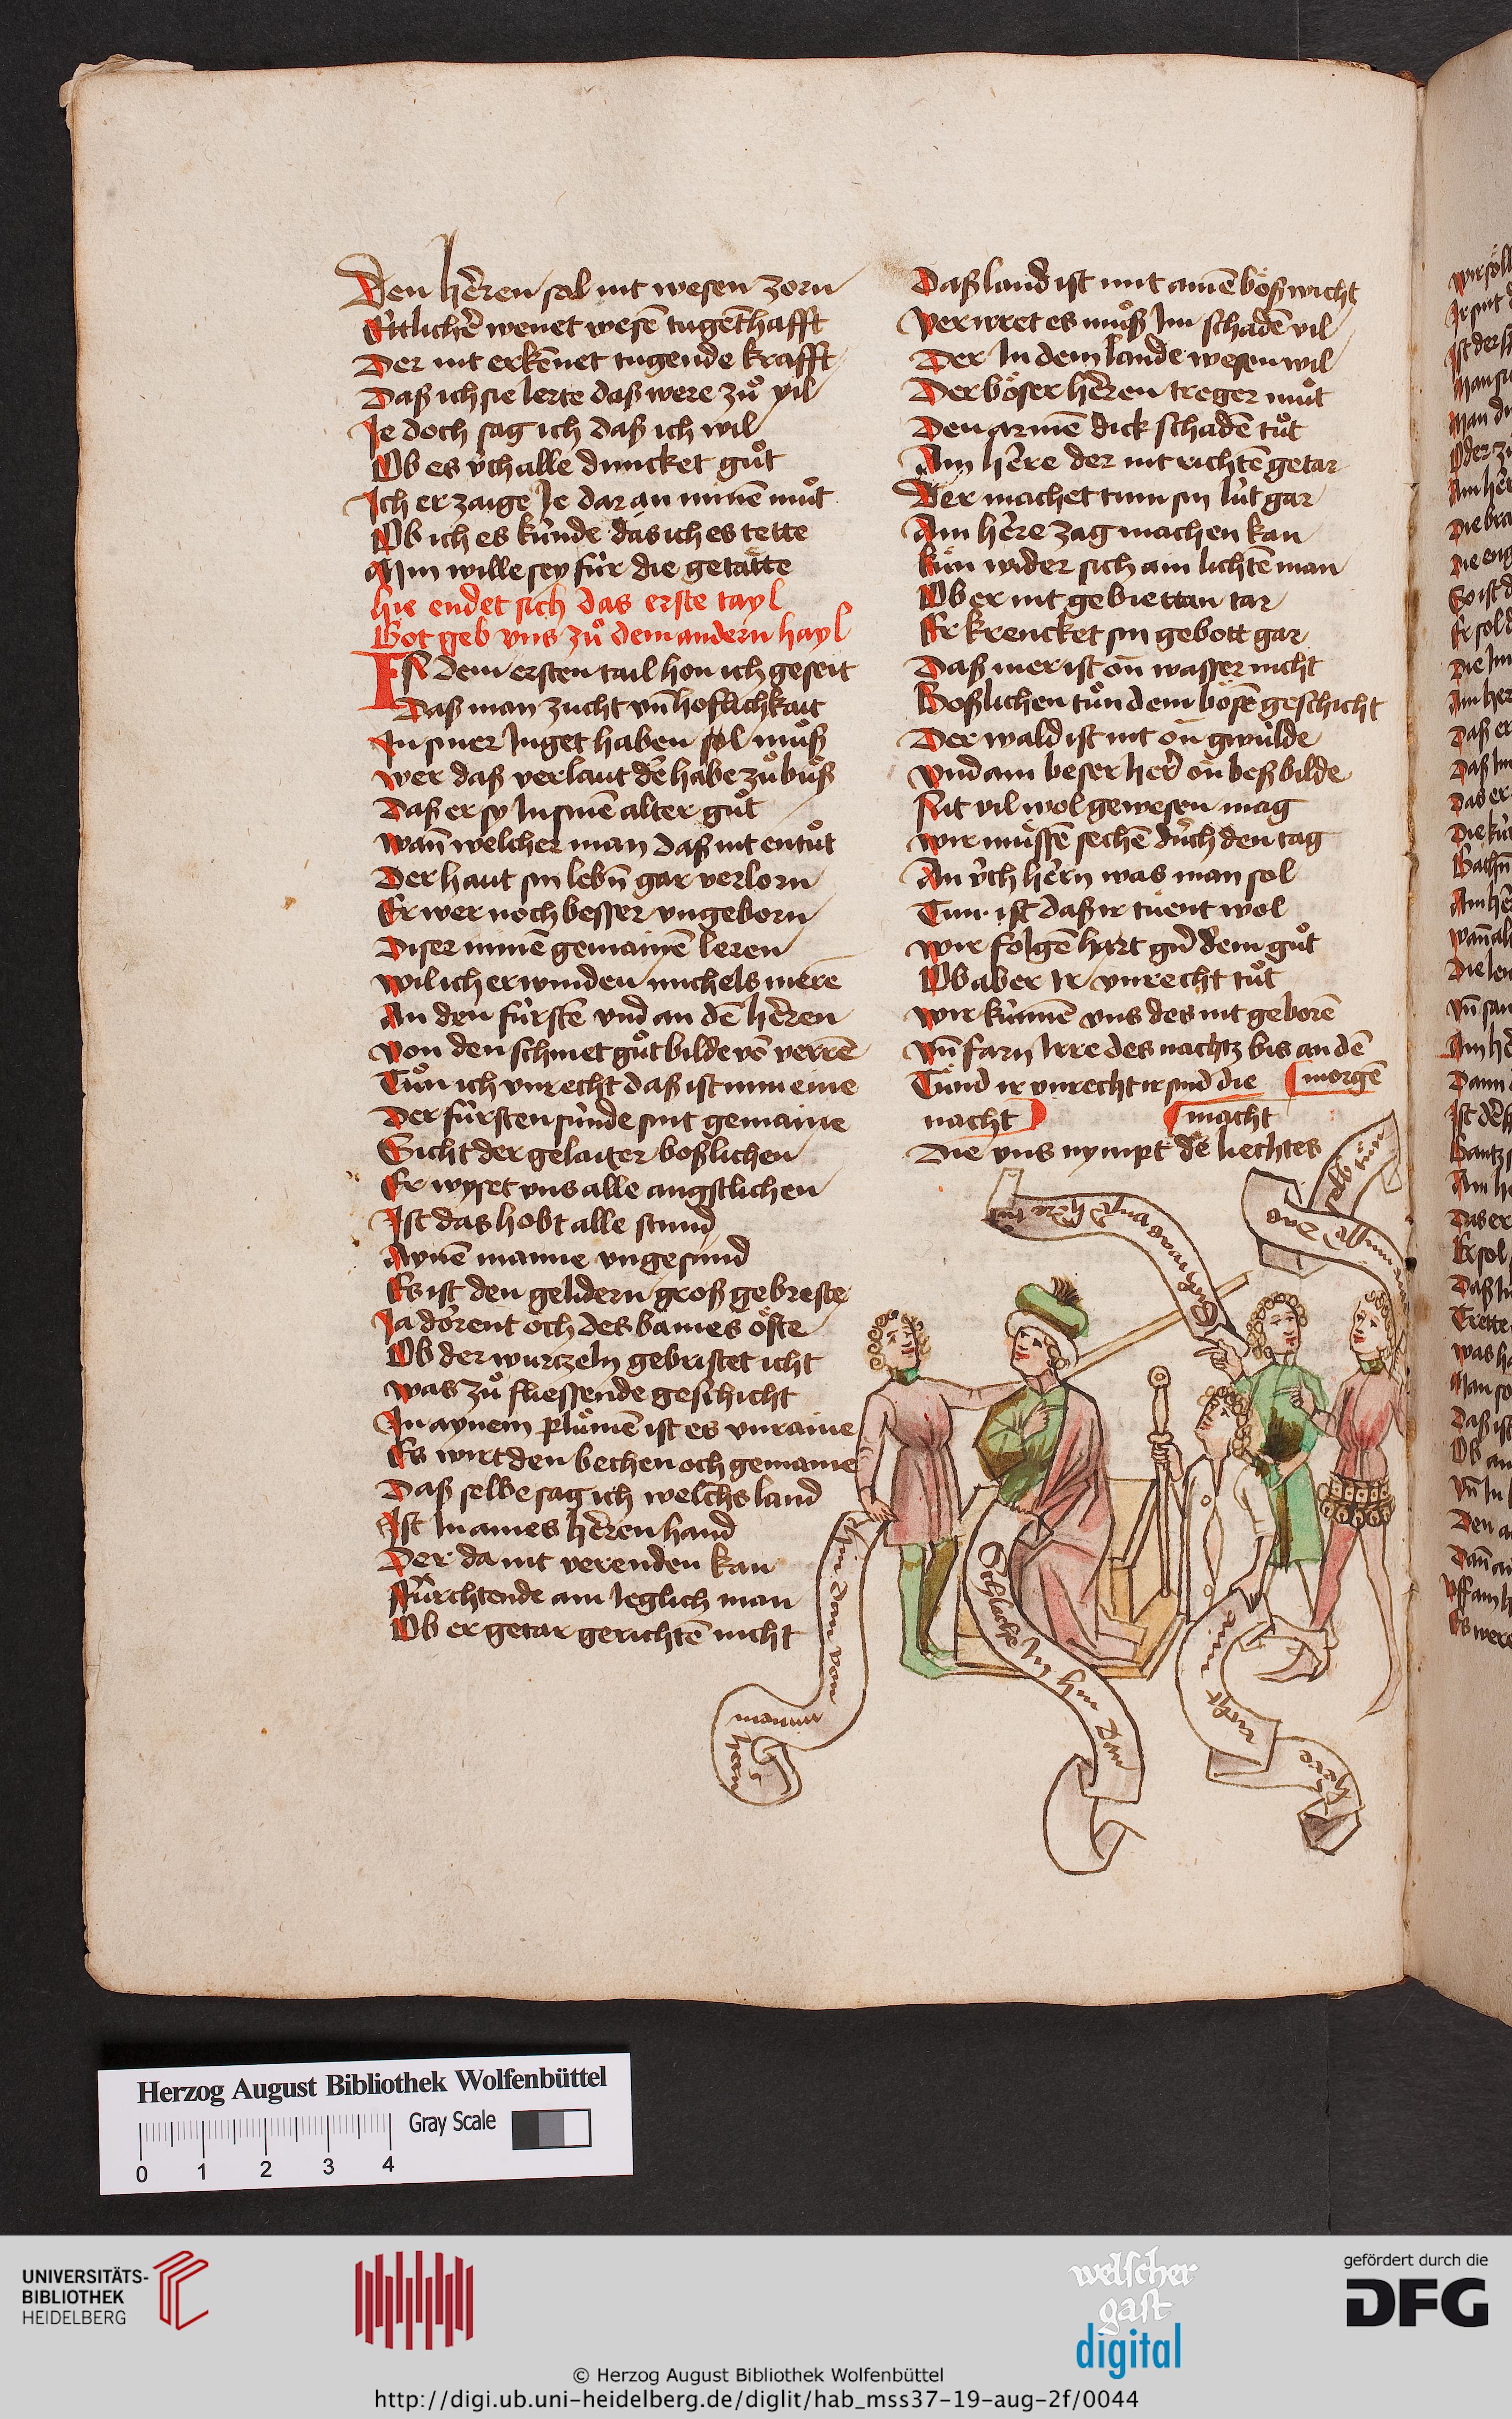 Den herren sol nit wesen zorn
Ettlicher wenet wesē tugēthafft
Der nit erkēnet tugende krafft
Daß ich sie lerte daß were zuͦ vil
Je doch sag ich daß ich wil
Ob es v̇ch alle duncket guͦt
Ich erzaige Je dar an minē muͦt
Ob ich es ku̇nde das ich es tette
Min wille sey fu̇r die getätte
hie endet sich das erste tayl
Got geb vns zuͦ dem andern hayl
dem ersten tail hon ich geseit
Daß man zucht vn̄ hoflichkait
In siner Juget haben sol muͦß
wer daß verlaut der habe zuͦ buͦß
Daß er sy In sinē alter guͦt
wan̄ welcher man daß nit entuͦt
Der haut sin lebn̄ gar verlorn
Er wer noch besser vngeborn
Diser minē gemainē leren
wil ich erwinden michels mere
An den fu̇rstē vnd an dē herren
von den schinet guͦt bilde vō verrē
Tuͦn ich vnrecht daß ist min eine
Der fu̇rsten su̇nde sint gemaine
Sicht der gelaiter boßlichen
Er wyset vns alle angstlichen
Ist das hobt alle stund
Aynē manne vngesund
Es ist den gelidern groß gebreste
Ja dorent och des bames öste
Ob der wurczeln gebristet icht
was zuͦ fliessende geschicht
In aynem pluͦmē ist es vnraine
Es wirt den bechen och gemaine
Daß selbe sag ich welchs land
Ist In aines herren hand
Der da nit verenden kan
Fu̇rchtende ain Jeglich man
Ob er getar gerichtē nicht
Daß land ist mit ainē bößwicht
Verirret es muͦß Im schadē vil
Der In dem lande wesen wil
Der böser herren treger muͦt
Den armē dick schadē tuͦt
Ain here der nit richtē getar
Der machet tum sin lu̇t gar
Ain here zag machen kan
ku̇n wider sich ain lichtē man
Ob er nit gebiettan tar
Er krencket sin gebott gar
Daß mer ist on wasser nicht
Boßlichen tuͦn dem bösē geschicht
Der wald ist nit on gwu̇lde
vnd ain beser her on beß bilde
Nit vil wol gewesen mag
wir mu̇ssē sechē durch den tag
An v̇ch hern was man sol
Tun ist daß ir tu̇ent wol
wir folgē hart gud dem guͦt
Ob aber Ir vnrecht tuͦt
wir ku̇nnē vns des nit geborē
vn̄ farn Irre des nachtz bis an dē
morgē
Tuͦnd ir vnrecht ir sind die
nacht
macht
Die vns nympt des liechtes
hin dan von
mannn
hern
Schlache In hin dan
nicht
here
Herzog August Bibliothek Wolfenbüttel
Gray Scale
0 1 2 3 4
UNIVERSITÄTS-
BIBLIOTHEK
HEIDELBERG
welscher
gast
digital
gefördert durch die
DFG
© Herzog August Bibliothek Wolfenbüttel
http://digi.ub.uni-heidelberg.de/diglit/hab_mss37-19-aug-2f/0044